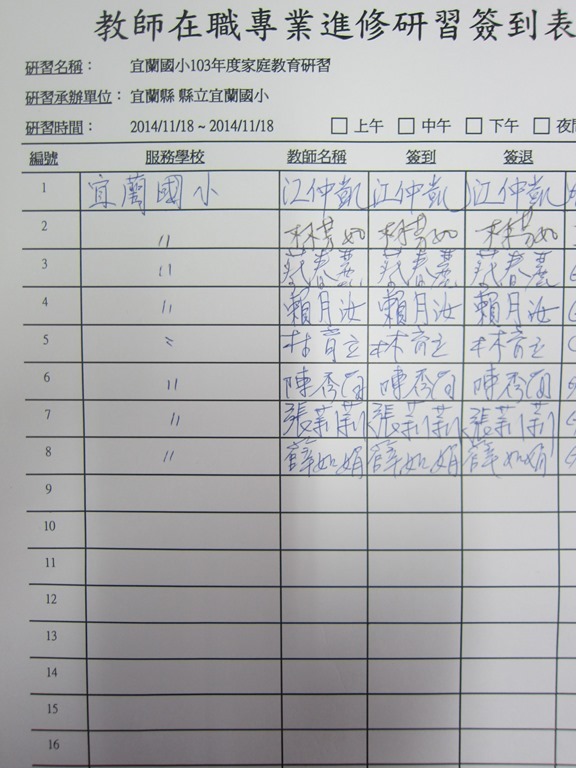 教師在職專業進修研習簽到表
研習名稱： 宜蘭國小103年度家庭教育研習
研習承辦單位： 宜蘭縣 縣立宜蘭國小
研習時間： 2014/11/18 ~ 2014/11/18 □ 上午 □ 中午 □ 下午 □ 夜
編號 服務學校 教師名稱 簽到 簽退
1 宜蘭國小 江仲凱 江仲凱 江仲凱
2 〃 林芳如 林芳如 林芳如
3 〃 范春蕙 范春蕙 范春蕙
4 〃 賴月汝 賴月汝 賴月汝
5 〃 林育立 林育立 林育立
6 〃 陳秀 陳秀 陳秀
7 〃 張莉莉 張莉莉 張莉莉
8 〃 薛如娟 薛如娟 薛如娟
9
10
11
12
13
14
15
16